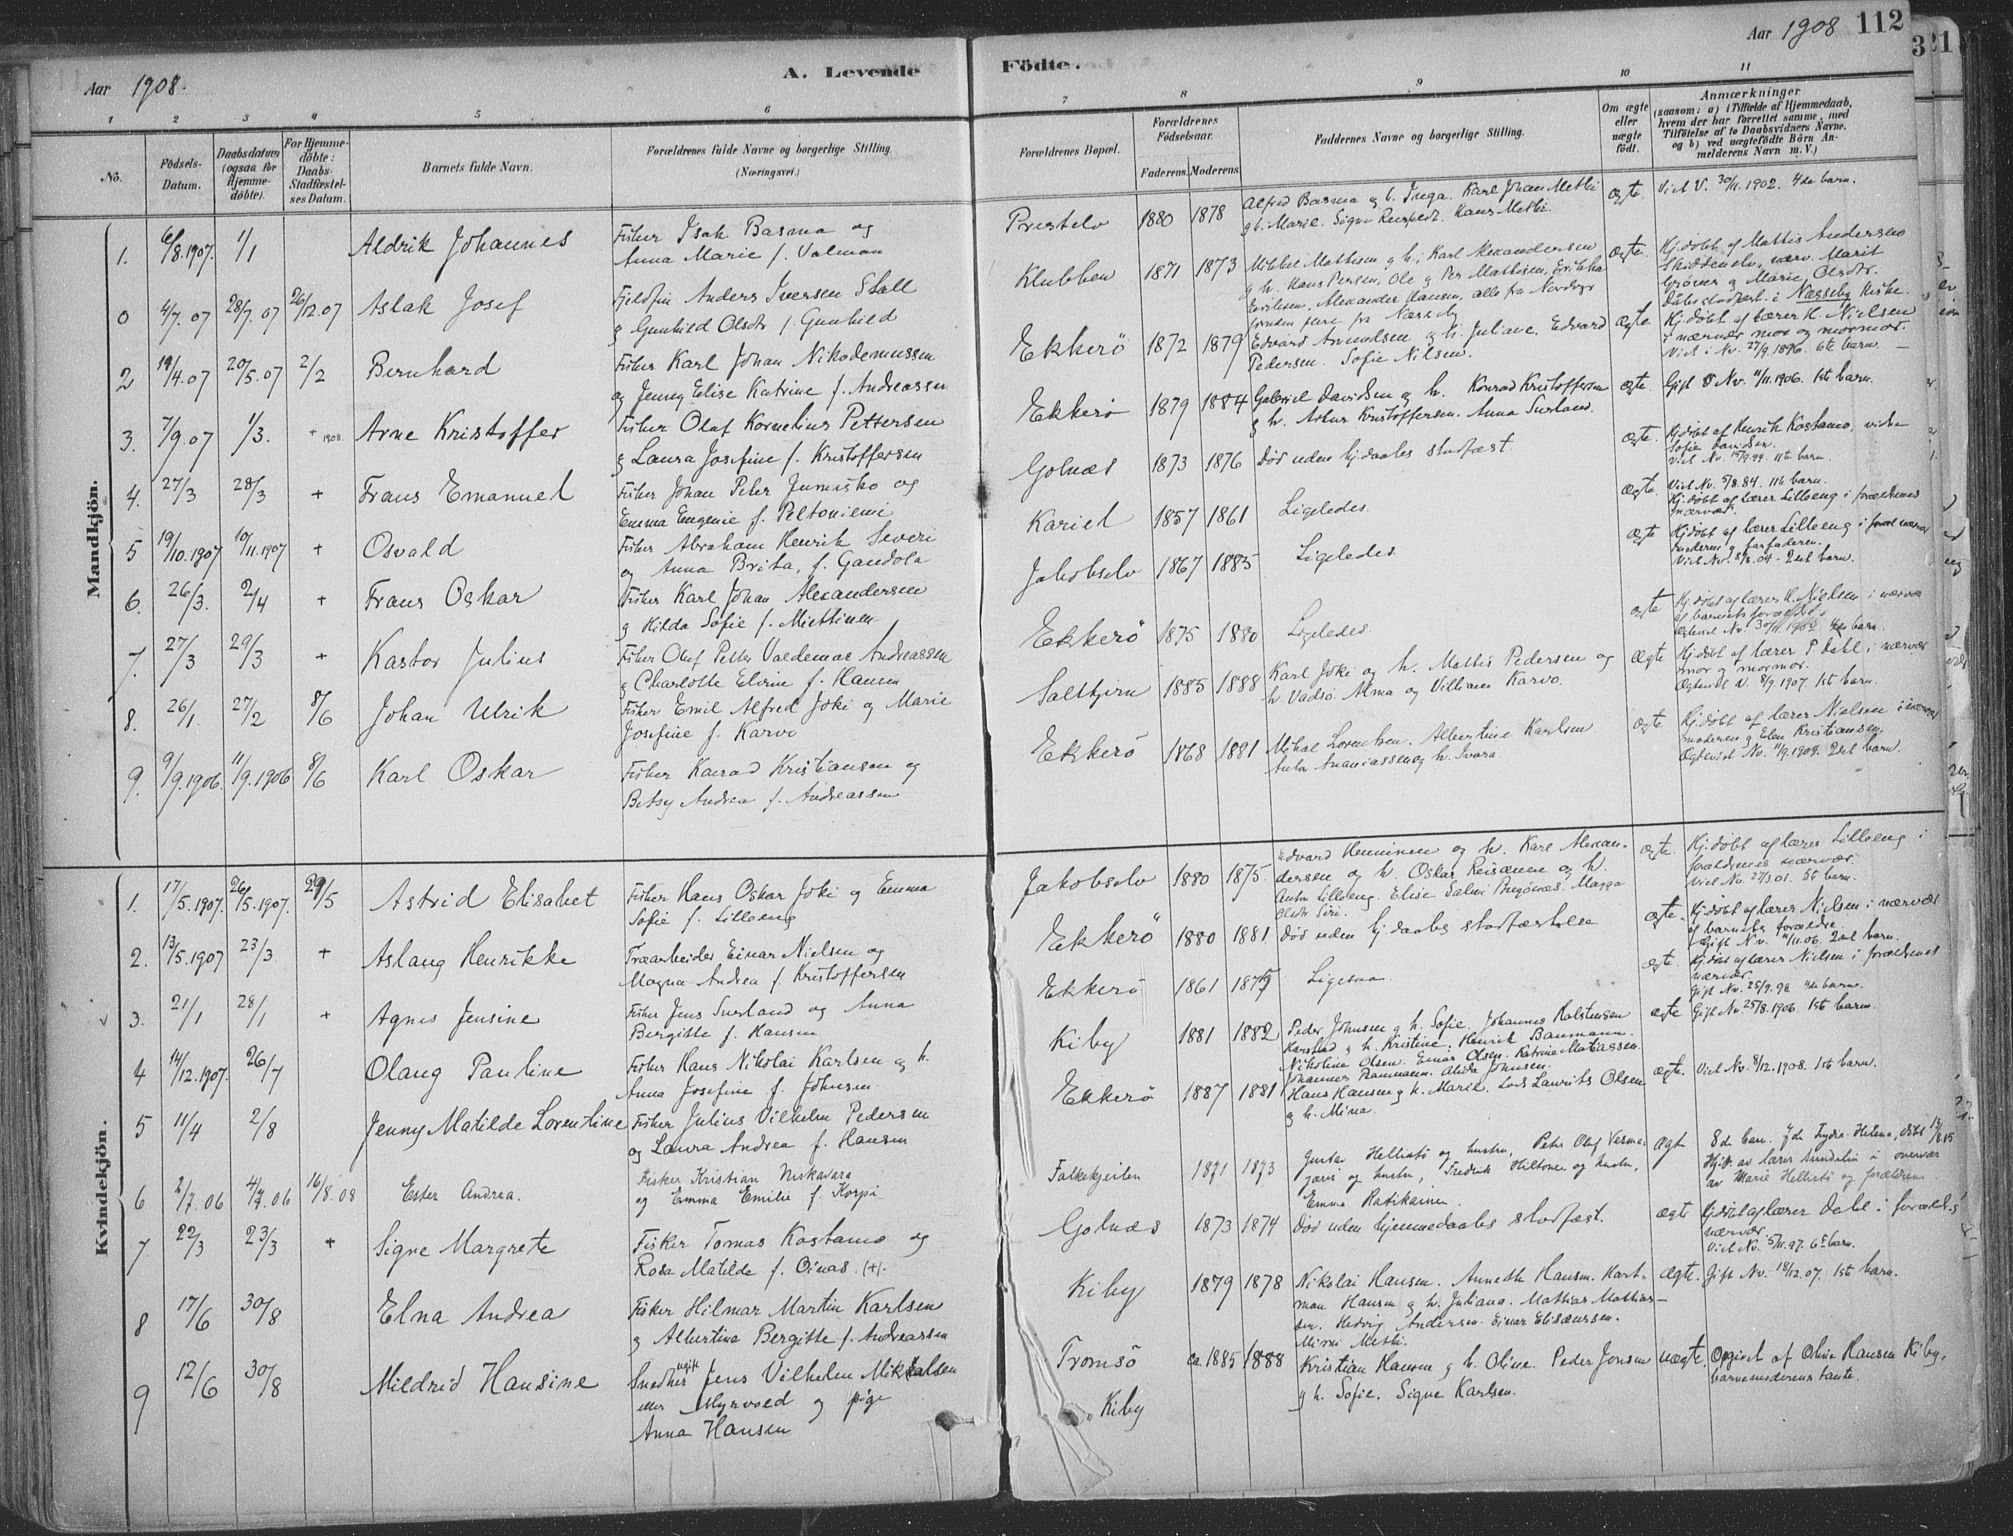 Aar 1908.
A. Levende Födte.
Aar 1908 112
1 2 3 4 5 6 7 8 9 10 11
No. Födsels-Datum. Daabsdatum (ogsaa for Hjemmedöbte). For Hjemmedöbte: Daabs-Stadfæstelses Datum. Barnets fulde Navn. Forældrenes fulde Navne og borgerlige Stilling (Næringsvei.) Forældrenes Bopæl. Forældrenes Födselsaar. Faderens. Moderens Faddernes Navne og borgerlige Stilling. Om ægte eller uægte födt. Anmærkninger (saasom: a) i Tilfælde af Hjemmedaab, hvem der har forrettet samme, med Tilföielse af to Daabsvidners Navne, og b) ved uægtefödte Börn Anmelderens Navn m. V.)
Mandkjön.
1. 6/8.1907. 1/1 Aldrik Johannes Fisker Isak Basma og
Anna Marie f. Valman
Prestelv 1880 1878 Alfred Basma og h. Inga. Karl Johan Methi
g h. Marie. Signe Hans Methi. ægte. Viet V. 30/11.1902. 4de barn.
0 4/7.07 28/7.07 26/12.07 Aslak Josef Fjeldfin Anders Iversen Stall
g Gunhild Olsdtr f. Gunhild
Klubben 1871 1873 Mikkel Mathisen g h; Karl Alexandersen
g h. Hans Persen, Ole g Per Mathisen,
Alexander Hansen, alle fra
foruden flere fra Næsseby ægte. Hj.døbt af Mattis Andersen
nærv. Marit
g Marie Olsdtr.
Daabs stadfæst. i Næsseby Kirke.
2 19/4.07 20/5.07 2/2 Bernhard Fisker Karl Johan Nikodemussen
og Jenny Elise Katrine f. Andreassen
Ekkerö 1872 1879 Edvard Amundsen g h. Juliane. Edvard
Pedersen. Sofie Nilsen. ægte. Hj.døbt af lærer K. Nielsen
i nærvær mor og mormor.
Viet i Nv. 27/9.1896. 6te barn.
3. 7/9.07 1/3. + 1908. Arne Kristoffer Fisker Olaf Kornelius Pettersen
g Laura Josefine f. Kristoffersen
Ekkerö 1879 1884 Gabriel Davidsen og h. Konrad Kristoffersen
g h. Arthur Kristoffersen. Anna Surland. ægte. Gift Nv. 11/11.1906. 1ste barn.
4. 27/3 28/3 + Frans Emanuel Fisker Johan Peter Junnisko og
Emma Eugenie f. Peltoniemi
Golnæs 1873 1876 Død uden hj.daabs stadfæst. ægte. Hj.døbt af Henrik Kostamo, vidne
Sofie Davidsen.
Viet Nv. 15/9.99. 11te barn.
5 19/10.1907 10/11.1907 + Osvald Fisker Abraham Henrik Severi
og Anna Brita, f. Gandola
Kariel 1857 1861 Ligeledes. ægte. Viet Nv. 5/8.84. 11te barn.
Hj.døbt af lærer Lilleeng i forældrenes
nærvær.
6. 26/3. 2/4 + Frans Oskar Fisker Karl Johan Alexandersen
g Hilda Sofie f. Miettinen
Jakobselv 1867 1885 Ligeledes ægte Hj.døbt af lærer Lilleeng i
moderen g farfaderen.
Viet Nv. 8/8.04. 2det barn.
7. 27/3 29/3 + Kastor Julius Fisker Oluf Petter Valdemar Andreassen
g Charlotte Elvine f. Hansen
Ekkerö 1875 1880 Ligeledes ægte Hj.døbt af lærer K. Nielsen i nærvær
af barnets forældre.
Ægteviet Nv. 30/11.1902. 4de barn.
8. 26/1. 27/2 8/6 Johan Ulrik Fisker Emil Alfred Joki og Marie
Josefine f. Karvo
Saltkjern 1885 1888 Karl Joki og h. Mattis Pedersen og
h. Vadsö Alma og Villiam Karvo. ægte Hj.døbt af lærer P. Dahl i nærvær
mor og mormor.
Ægteviet V. 8/9.1907. 1ste barn.
9. 9/9.1906. 11/9.1906 8/6 Karl Oskar Fisker Konrad Kristiansen og
Betsy Andrea f. Andreassen
Ekkerö 1868 1881 Mikal Lorentsen. Albertine Karlsen
Anton Ananiassen og h. Ivara. ægte Hj.døbt af lærer Nielsen i nærvær
moderen g Elen Kristiansen.
Ægteviet Nv. 11/9.1904. 2det barn.
Kvindekjön.
1. 17/5.1907. 26/5.1907. 29/5 Astrid Elisabet Fisker Hans Oskar Joki og Emma
Sofie f. Lilleeng
Jakobselv 1880 1875. Edvard Henninen og h. Karl Alexan-
dersen og h. Oskar Reisänen og h.
Anton Lilleeng. Elise Salmi Magga
Olsdtr Siri. ægte. Hj.døbt af lærer Lilleeng i
forældrenes nærvær.
Viet Nv. 27/3.01. 5te barn.
2. 13/5.1907 23/3 + Aslaug Henrikke Træarbeider Einar Nielsen og
Magna Andrea f. Kristoffersen
Ekkerö 1880 1881 Død uden hj.daabs stadfæstelse ægte. Hj.døbt af lærer Nielsen i nærvær
af barnets forældre.
Gift Nv. 11/11.06. 2det barn.
3. 21/1 28/1 + Agnes Jensine Fisker Jens Surland og Anna
Bergitte f. Hansen
Ekkerö 1861 1875 Ligesaa ægte. Hj.døbt af lærer Nielsen i forældrenes
nærvær.
Gift Nv. 25/9.98. 4de barn.
4 14/12.1907. 26/7 Olaug Pauline Fisker Hans Nikolai Karlsen og h.
Anna Josefine f. Johnsen
Kiby 1881 1882 Peder Johnsen g h. Sofie. Johannes Halstensen
Karstad g h. Kristine. Henrik Baumann.
Nikoline Olsen. Einar Olsen. Katrine Matiassen.
Johannes Baumann. Alida Johnsen. ægte Gift Nv. 25/8.1906. 1ste barn.
5 11/4 2/8 Jenny Matilde Lorentine Fisker Julius Vilhelm Pedersen
og Laura Andrea f. Hansen
Ekkerö 1887 1881 Hans Hansen g h. Marie. Lars Laurits Olsen
g h. Mina. ægte. Viet Nv. 8/12.1908. 1ste barn.
6 2/7.06 4/7.06 16/8.08 Ester Andrea. Fisker Kristian Niskavara
og Emma Emilie f. Korpi
Falkefjellen 1871 1873 Gustav Hellistö og hustru, Peter Oluf Verma-
järvi og hustru, Fredrik Hiltonen og hustru,
Emma Ratikainen. Ægte 8de barn. 7de Lydia Helena, døbt 13/8.05
Hjd. av lærer Sundelin i overvær
av Marie Hellistö og forældrene.
7 22/3 23/3 + Signe Margrete Fisker Tomas Kostamo og
Rosa Matilde f. Oinas. (+).
Golnæs 1873 1874 Død uden hjemmedaabs stadfæst. ægte Hj.døbt af lærer Dahl i forældres
nærvær.
Viet Nv. 5/11.97. 6te barn.
8 17/6 30/8 Elna Andrea Fisker Hilmar Martin Karlsen
g Albertina Bergitte f. Andreassen
Kiby 1879 1878 Nikolai Hansen. Anneth Hansen. Hart-
man Hansen g h. Juliana. Mathias Mathias-
sen. Hedvig Andersen. Einar Eliseussen.
Mimi Methi. ægte. Gift Nv. 18/12.07. 1ste barn.
9 12/6 30/8 Mildrid Hansine Snedker ugift Jens Vilhelm Mikkalsen
eller Myrvold og pige
Anna Hansen
Tromsö ca. 1885 1888 Kristian Hansen g h. Oline. Peder Jonsen
g h. Sofie. Signe Karlsen. uægte. Opgivet af Oline Hansen Kiby,
barnemoderens tante.
Kiby